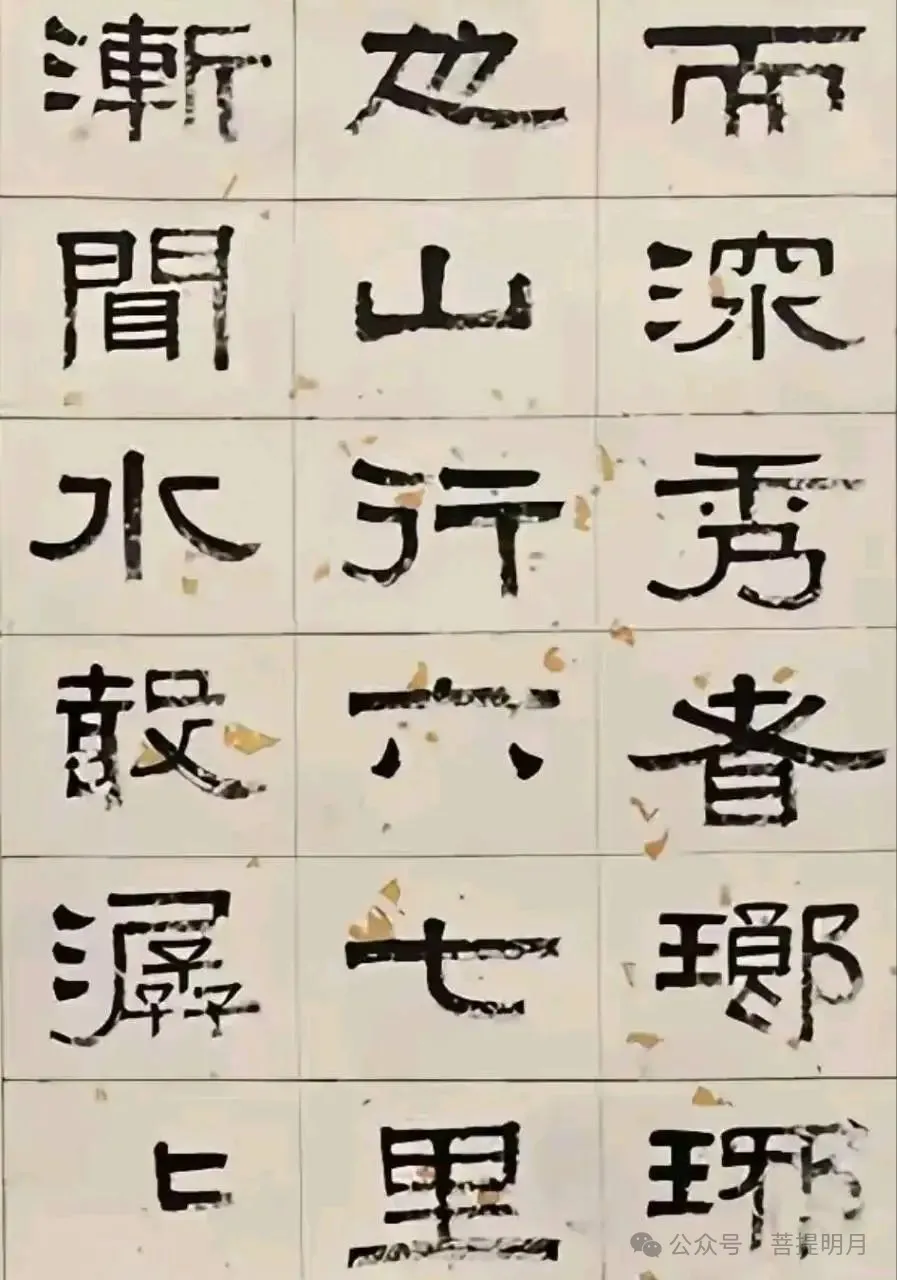 而深秀者瑯琊
也山行六七里
漸聞水聲潺〻
公众号 · 菩提明月